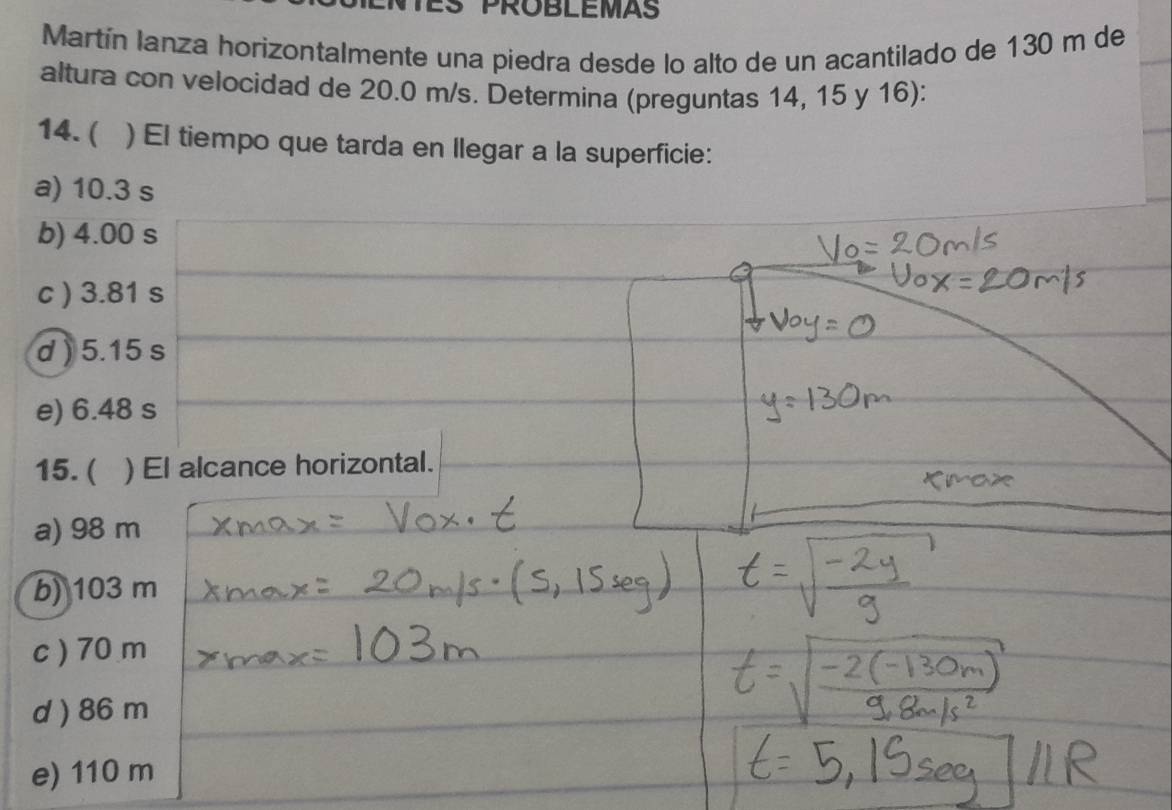 PROBLEMAS
Martín lanza horizontalmente una piedra desde lo alto de un acantilado de 130 m de
altura con velocidad de 20.0 m/s. Determina (preguntas 14, 15 y 16):
14. (   ) El tiempo que tarda en llegar a la superficie:
a) 10.3 s
b) 4.00 s
c ) 3.81 s
d ) 5.15 s
e) 6.48 s
Vo = 20m/s
Vox = 20m/s
Voy = 0
y = 130m
xmax
15. (   ) El alcance horizontal.
a) 98 m
b) 103 m
c ) 70 m
d ) 86 m
e) 110 m
xmax = Vox . t
xmax = 20m/s · (5,15seg)
xmax = 103m
t = √(-2y/g)
t = √(-2(-130m)/9.8m/s²)
t = 5,15seg //R